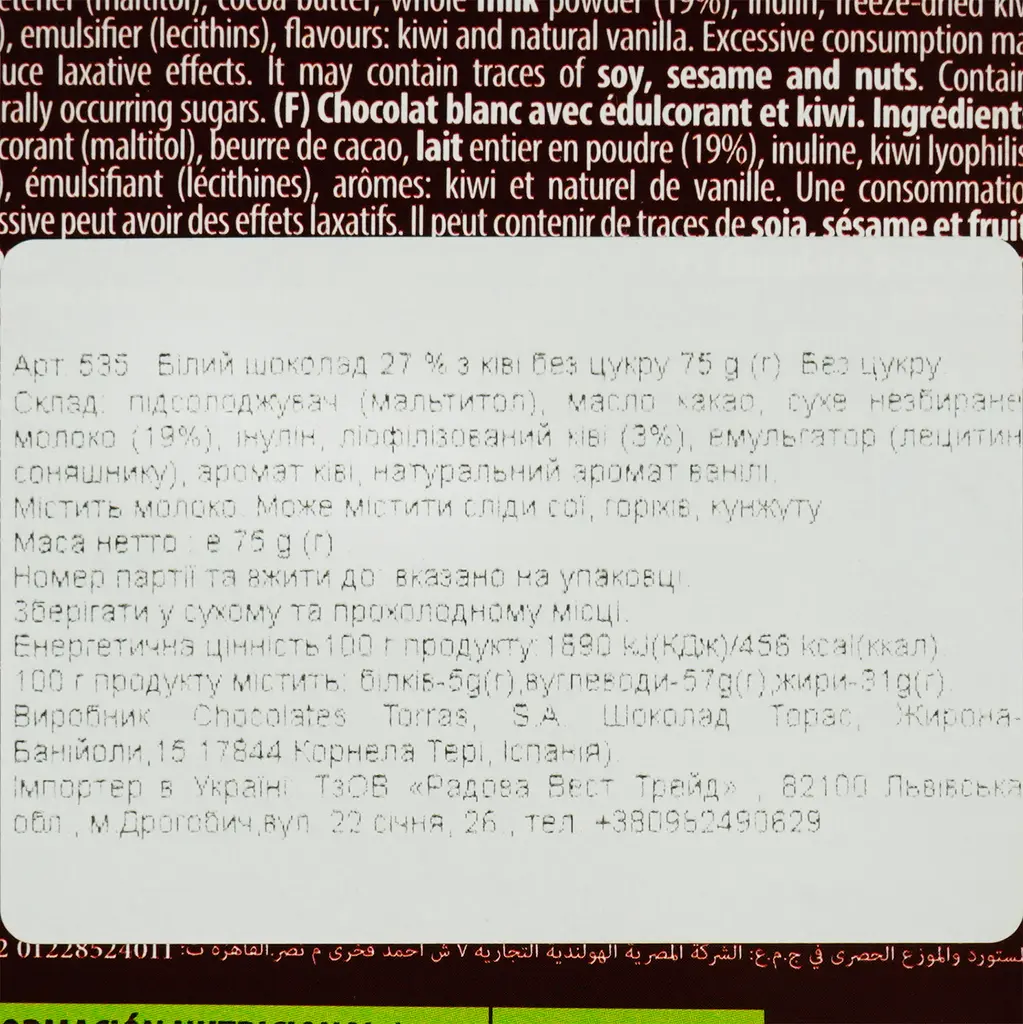 (maltitol), cocoa butter, whole milk powder (19%), inulin, freeze-dried
), emulsifier (lecithins), flavours: kiwi and natural vanilla. Excessive consumption
laxative effects. It may contain traces of soy, sesame and nuts.
occurring sugars. (F) Chocolat blanc avec édulcorant et kiwi. Ingrédient
(maltitol), beurre de cacao, lait entier en poudre (19%), inuline, kiwi
), émulsifiant (lécithines), arômes: kiwi et naturel de vanille. Une
peut avoir des effets laxatifs. Il peut contenir de traces de soja, sésame et
Арт. 535 Білий шоколад 27 % з ківі без цукру 75 g (г) Без цукру
Склад: підсолоджувач (мальтитол), масло какао, сухе незбиране
молоко (19%), інулін, ліофілізований ківі (3%), емульгатор (лецитин
соняшнику), аромат ківі, натуральний аромат ванілі.
Містить молоко. Може містити сліди сої, горіхів, кунжуту
Маса нетто : е 75 g (г)
Номер партії та вжити до: вказано на упаковці.
Зберігати у сухому та прохолодному місці.
Енергетична цінність100 г продукту: 1890 kJ(КДж)/456 kcal(ккал).
100 г продукту містить: білків-6g(г),вуглеводи-57g(г),жири-31g(г).
Виробник Chocolates Torras, S.A. Шоколад Торас, Жирона-
Банійоли,15 17844 Корнела Тері, Іспанія).
Імпортер в Україні: ТзОВ «Радова Вест Трейд» , 82100 Львівська
обл., м.Дрогобич,вул. 22 січня, 26 , тел. +380962490629
المستورد والموزع الحصرى في ج.م.ع: الشركة المصرية الهولندية التجارية ٧ ش احمد فخرى م نصر.القاهرة ت: 01228524011